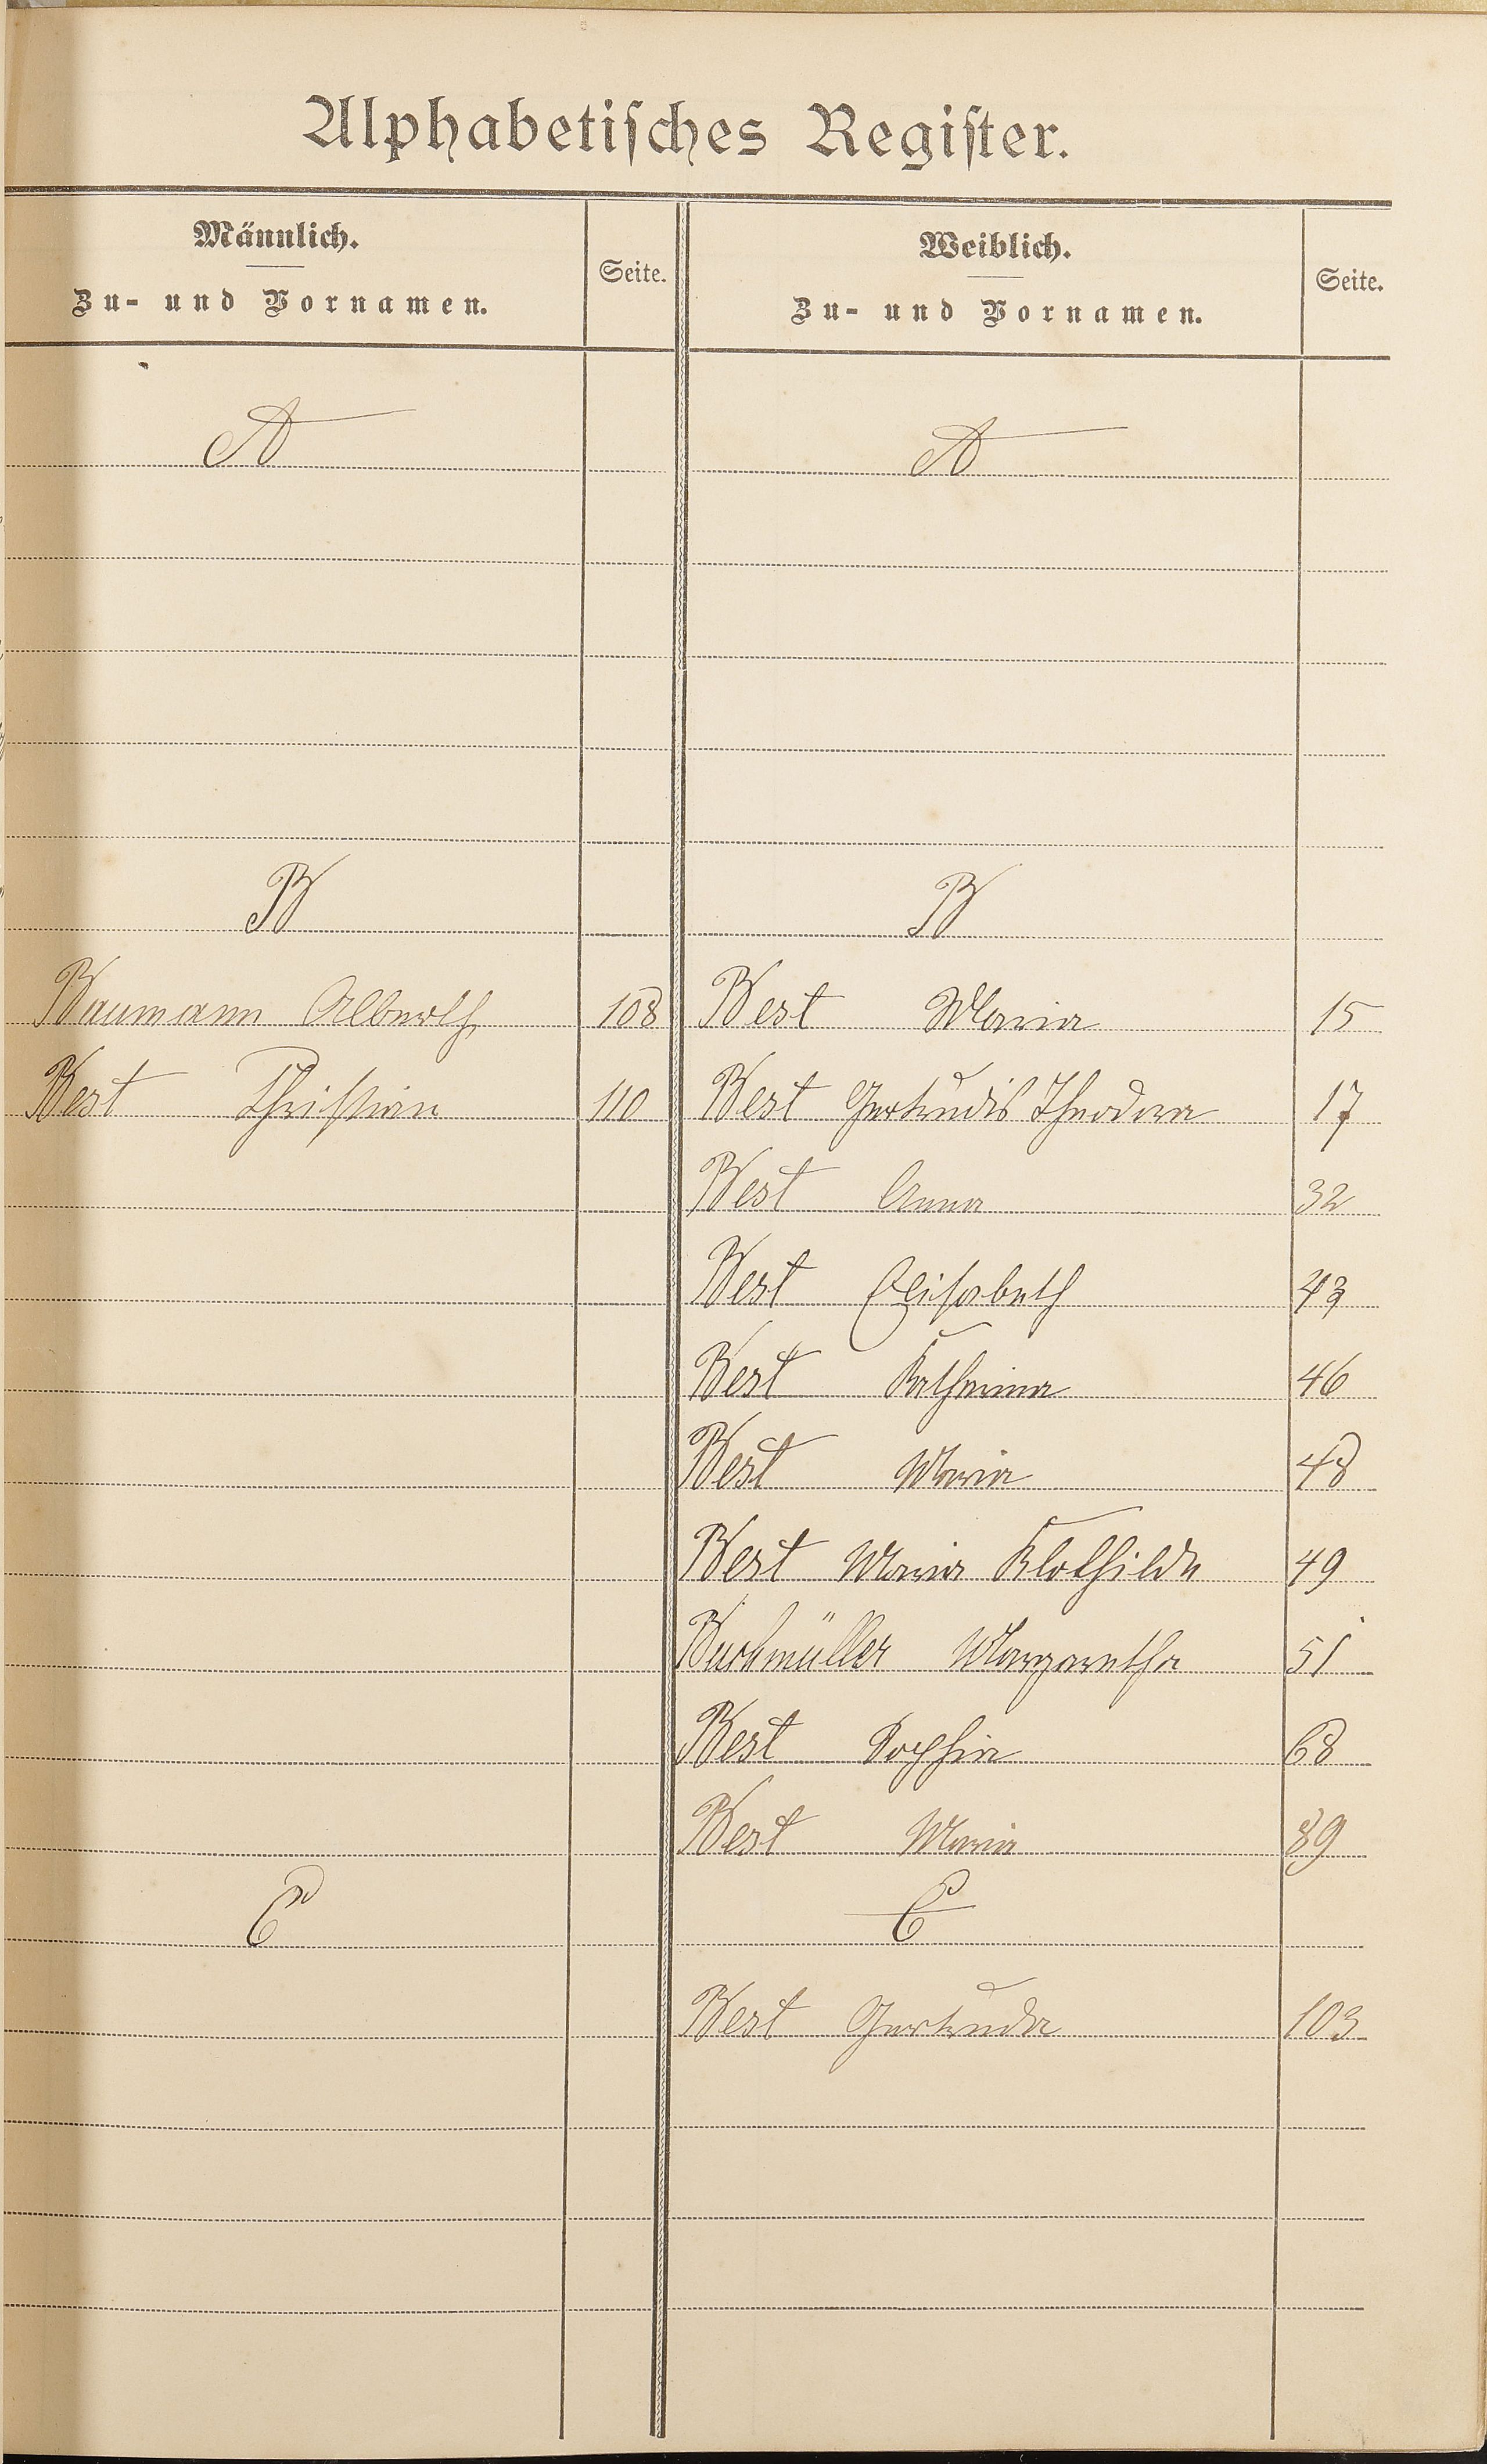 Alphabetisches Register.
Männlich.
Zu- und Vornamen.
Seite.
Weiblich.
Zu- und Vornamen.
Seite.
A
A
B
B
Baumann Alberth 108
Best Maria 15
Best Christian 110
Best Gertrudis Theodora 17
Best Anna 32
Best Elisabeth 43
Best Katharina 46
Best Maria 48
Best Maria Klothilde 49
Buchmüller Margaretha 51
Best Sophia 68
Best Maria 89
C
C
Best Gertruda 103